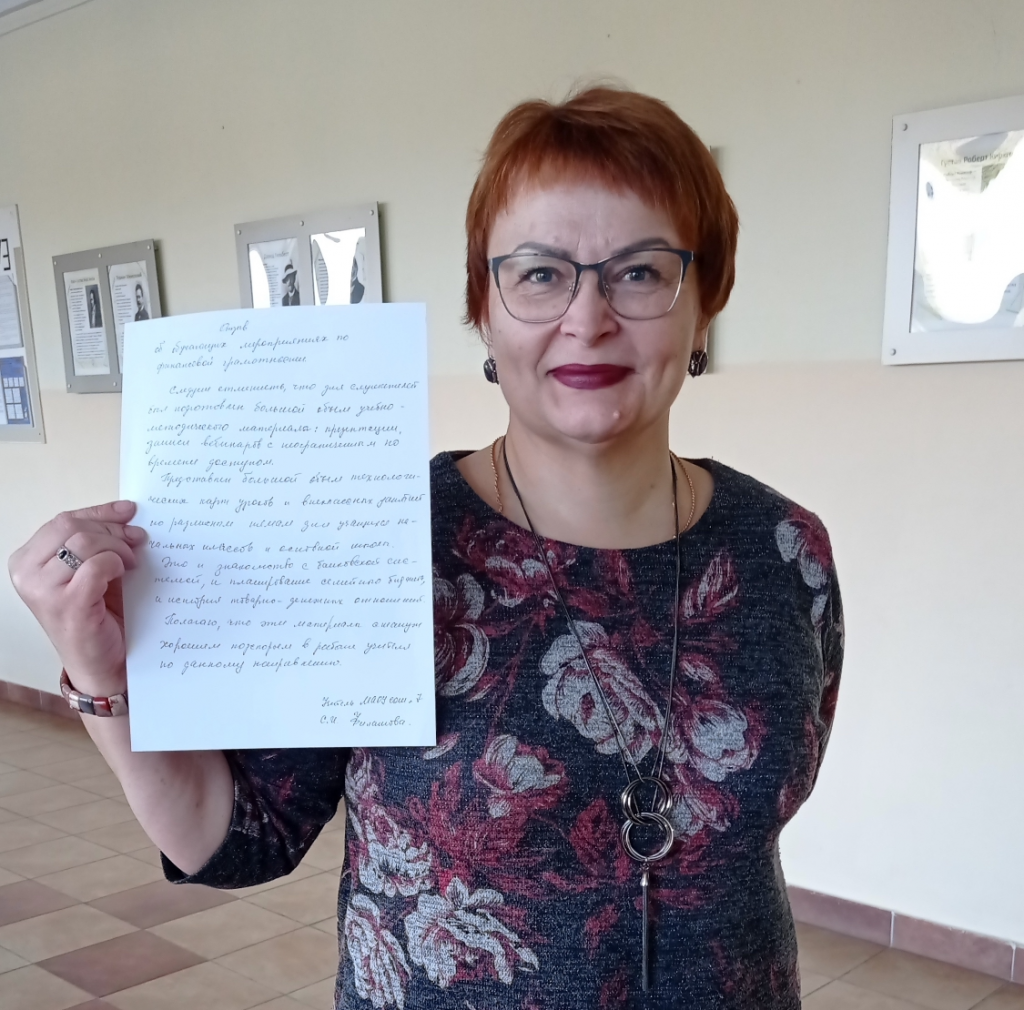 Отзыв
об обучающих мероприятиях по
финансовой грамотности
Следует отметить, что для слушателей
был подготовлен большой объем учебно-
методического материала: презентации,
записи вебинаров с неограниченным по
времени доступом.
Представлен большой объем технологи-
ческих карт уроков и внеклассных занятий
по различным темам для учащихся на-
чальных классов и основной школы.
Это и знакомство с банковской сис-
темой, и планирование семейного бюджета,
и история товарно-денежных отношений.
Полагаю, что эти материалы окажут
хорошим подспорьем в работе учителя
по данному направлению.
Учитель МАОУ СОШ № 7
С.И Филатова.
Роберт